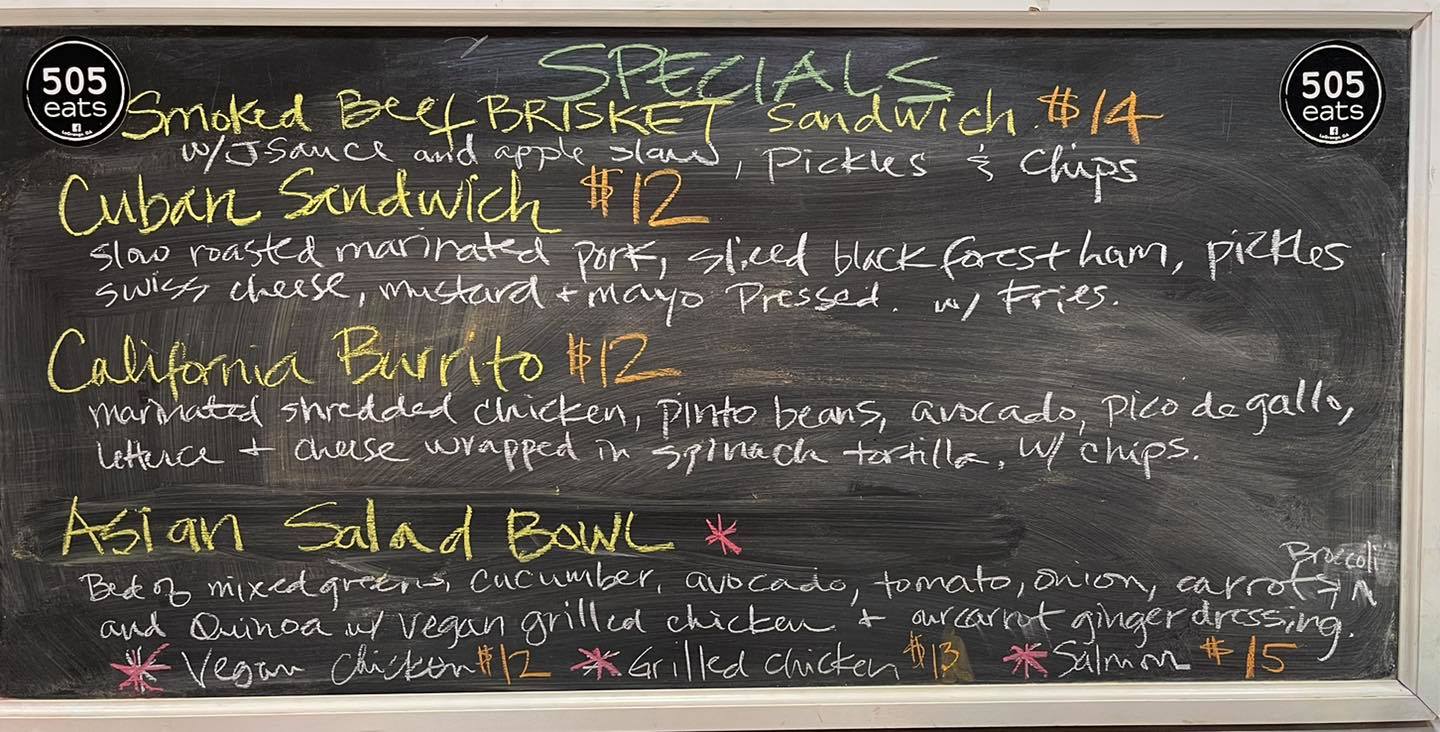 505
eats
LaGrange, GA
SPECIALS
505
eats
LaGrange, GA
Smoked Beef BRISKET Sandwich $14
w/ J Sauce and apple slaw, Pickles & Chips
Cuban Sandwich $12
slow roasted marinated pork, sliced black forest ham, pickles
swiss cheese, mustard + mayo Pressed. w/ Fries.
California Burrito $12
marinated shredded chicken, pinto beans, avocado, pico de gallo,
lettuce + cheese wrapped in spinach tortilla. w/ chips.
Asian Salad Bowl *
Broccoli
Bed of mixed greens, cucumber, avocado, tomato, onion, carrots, ^
and Quinoa w/ Vegan grilled chicken + our carrot ginger dressing.
* Vegan Chicken $12 * Grilled chicken $13 * Salmon $15